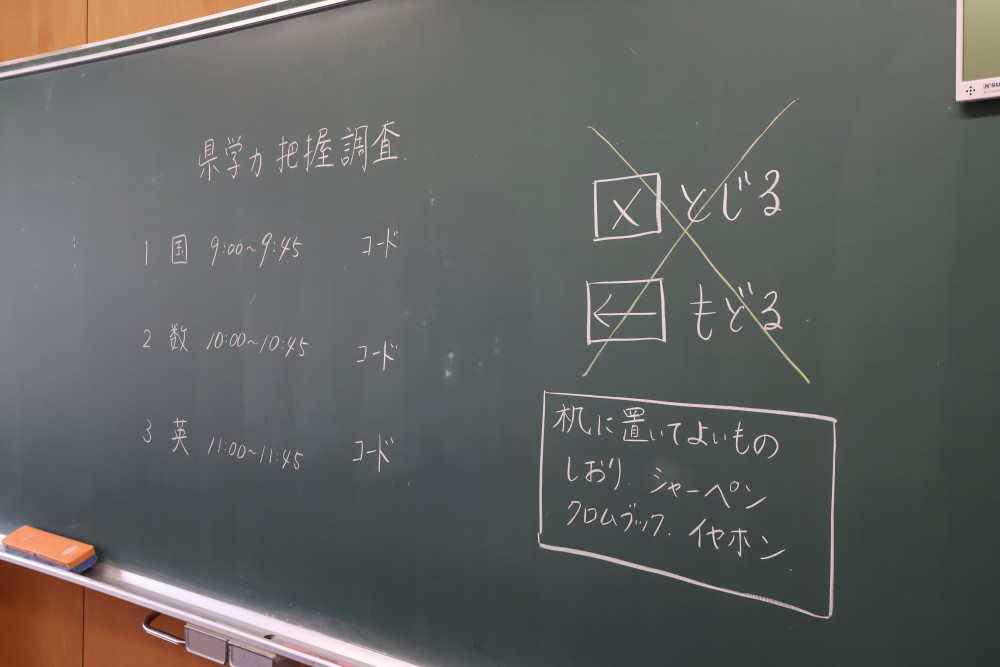 県学力把握調査
1 国 9:00~9:45 コード
2 数 10:00~10:45 コード
3 英 11:00~11:45 コード
× とじる
← もどる
机に置いてよいもの
しおり. シャーペン
クロムブック. イヤホン.